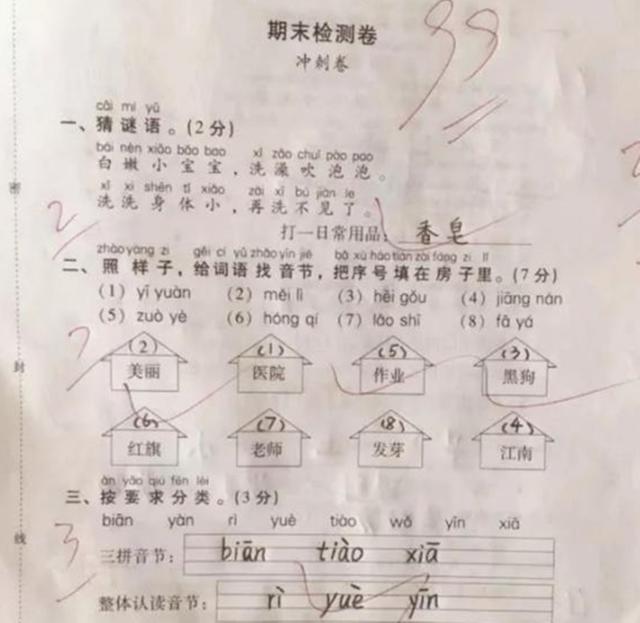 期末检测卷
98
冲刺卷
cāi mí yǔ
一、猜谜语。(2分)
bái nèn xiǎo bǎo bao xǐ zǎo chuī pào pao
白嫩小宝宝，洗澡吹泡泡。
xǐ xǐ shēn tǐ xiǎo zài xǐ bú jiàn le
洗洗身体小，再洗不见了。
2
打一日常用品：香皂
zhào yàng zi gěi cí yǔ zhǎo yīn jié bǎ xù hào tián zài fáng zi lǐ
二、照样子，给词语找音节，把序号填在房子里。(7分)
(1) yī yuàn (2) měi lì (3) hēi gǒu (4) jiāng nán
(5) zuò yè (6) hóng qí (7) lǎo shī (8) fā yá
7
(2) (1) (5) (3)
美丽 医院 作业 黑狗
(6) (7) (8) (4)
红旗 老师 发芽 江南
àn yāo qiú fēn lèi
三、按要求分类。(3分)
biān yàn rì yuè tiào wǒ yīn xiā
3
三拼音节：biān tiào xiā
整体认读音节：rì yuè yīn
密
封
线